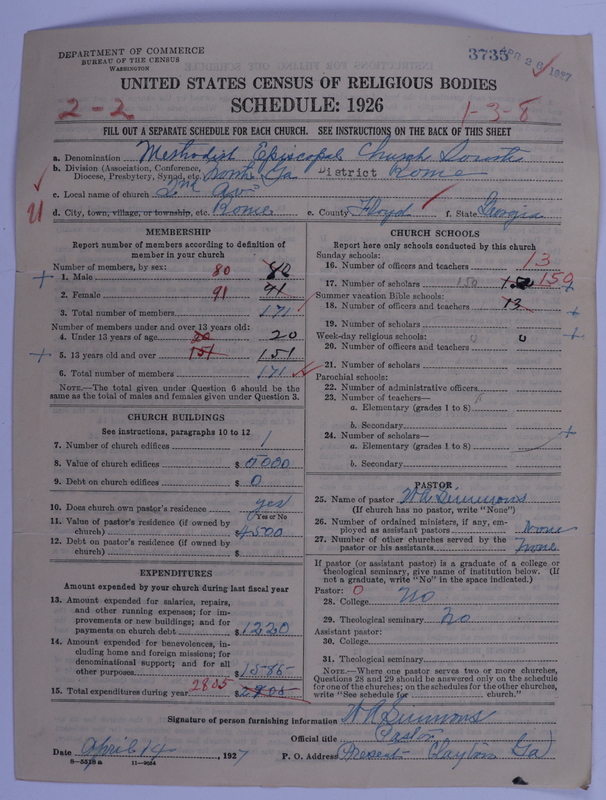 DEPARTMENT OF COMMERCE
BUREAU OF THE CENSUS
WASHINGTON
3735
APR 26 1927
UNITED STATES CENSUS OF RELIGIOUS BODIES
SCHEDULE: 1926
2-2
1-3-8
FILL OUT A SEPARATE SCHEDULE FOR EACH CHURCH. SEE INSTRUCTIONS ON THE BACK OF THIS SHEET
a. Denomination Methodist Episcopal Church South
b. Division (Association, Conference, Diocese, Presbytery, Synod, etc. North Ga District Rome
c. Local name of church 2nd Ave
d. City, town, village, or township, etc. Rome e. County Floyd f. State Georgia
MEMBERSHIP
Report number of members according to definition of
member in your church
Number of members, by sex:
1. Male 80 80
2. Female 91 91
3. Total number of members 171
Number of members under and over 13 years old:
4. Under 13 years of age 20 20
5. 13 years old and over 151 151
6. Total number of members 171
NOTE.—The total given under Question 6 should be
the same as the total of males and females given under Question 3.
CHURCH BUILDINGS
See instructions, paragraphs 10 to 12
7. Number of church edifices 1
8. Value of church edifices $ 5000
9. Debt on church edifices $ 0
10. Does church own pastor's residence yes
Yes or No
11. Value of pastor's residence (if owned by
church) $ 4500
12. Debt on pastor's residence (if owned by
church) $
EXPENDITURES
Amount expended by your church during last fiscal year
13. Amount expended for salaries, repairs,
and other running expenses; for im-
provements or new buildings; and for
payments on church debt $ 1220
14. Amount expended for benevolences, in-
cluding home and foreign missions; for
denominational support; and for all
other purposes $ 1585
15. Total expenditures during year 2805
CHURCH SCHOOLS
Report here only schools conducted by this church
Sunday schools:
16. Number of officers and teachers 13
17. Number of scholars 150 150 150
Summer vacation Bible schools:
18. Number of officers and teachers 13
19. Number of scholars
Week-day religious schools: 0 0
20. Number of officers and teachers
21. Number of scholars
Parochial schools:
22. Number of administrative officers
23. Number of teachers—
a. Elementary (grades 1 to 8)
b. Secondary
24. Number of scholars—
a. Elementary (grades 1 to 8)
b. Secondary
PASTOR
25. Name of pastor W R Simmons
(If church has no pastor, write "None")
26. Number of ordained ministers, if any, em-
ployed as assistant pastors None
27. Number of other churches served by the
pastor or his assistants None
If pastor (or assistant pastor) is a graduate of a college or
theological seminary, give name of institution below. (If
not a graduate, write "No" in the space indicated.)
Pastor: 0
28. College No
29. Theological seminary No
Assistant pastor:
30. College
31. Theological seminary
NOTE.—Where one pastor serves two or more churches,
Questions 28 and 29 should be answered only on the schedule
for one of the churches; on the schedules for the other churches,
write "See schedule for church."
Signature of person furnishing information W R Simmons
Official title Pastor
Date April 14, 1927 P. O. Address Present Clayton Ga
8—5518a 11—9054